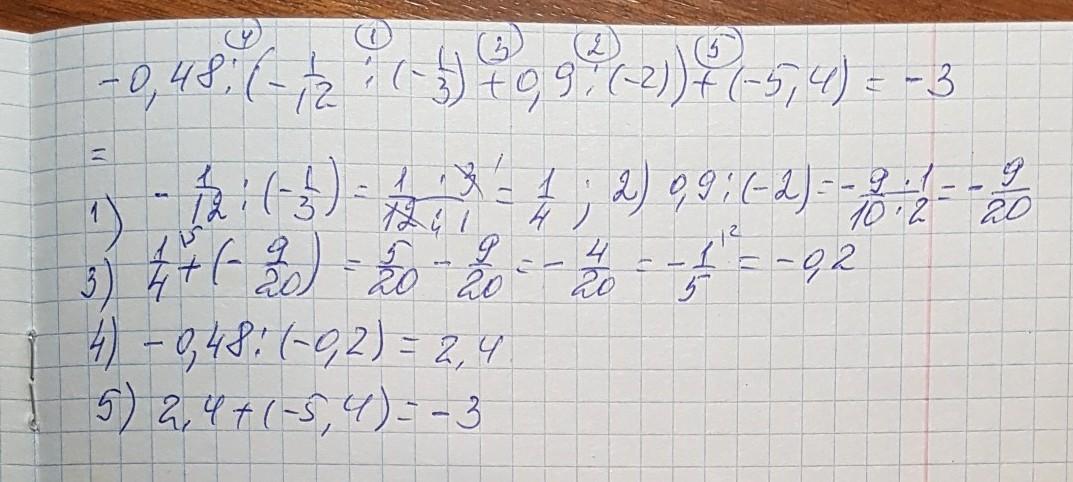 ④ ① ③ ② ⑤
-0,48:(-1/12 : (-1/3) + 0,9 : (-2)) + (-5,4) = -3
=
1) -1/12 : (-1/3) = 1·3/12·1 = 1/4 ; 2) 0,9 : (-2) = -9·1/10·2 = -9/20
3) 1/4 + (-9/20) = 5/20 - 9/20 = -4/20 = -1/5 = -0,2
4) -0,48 : (-0,2) = 2,4
5) 2,4 + (-5,4) = -3